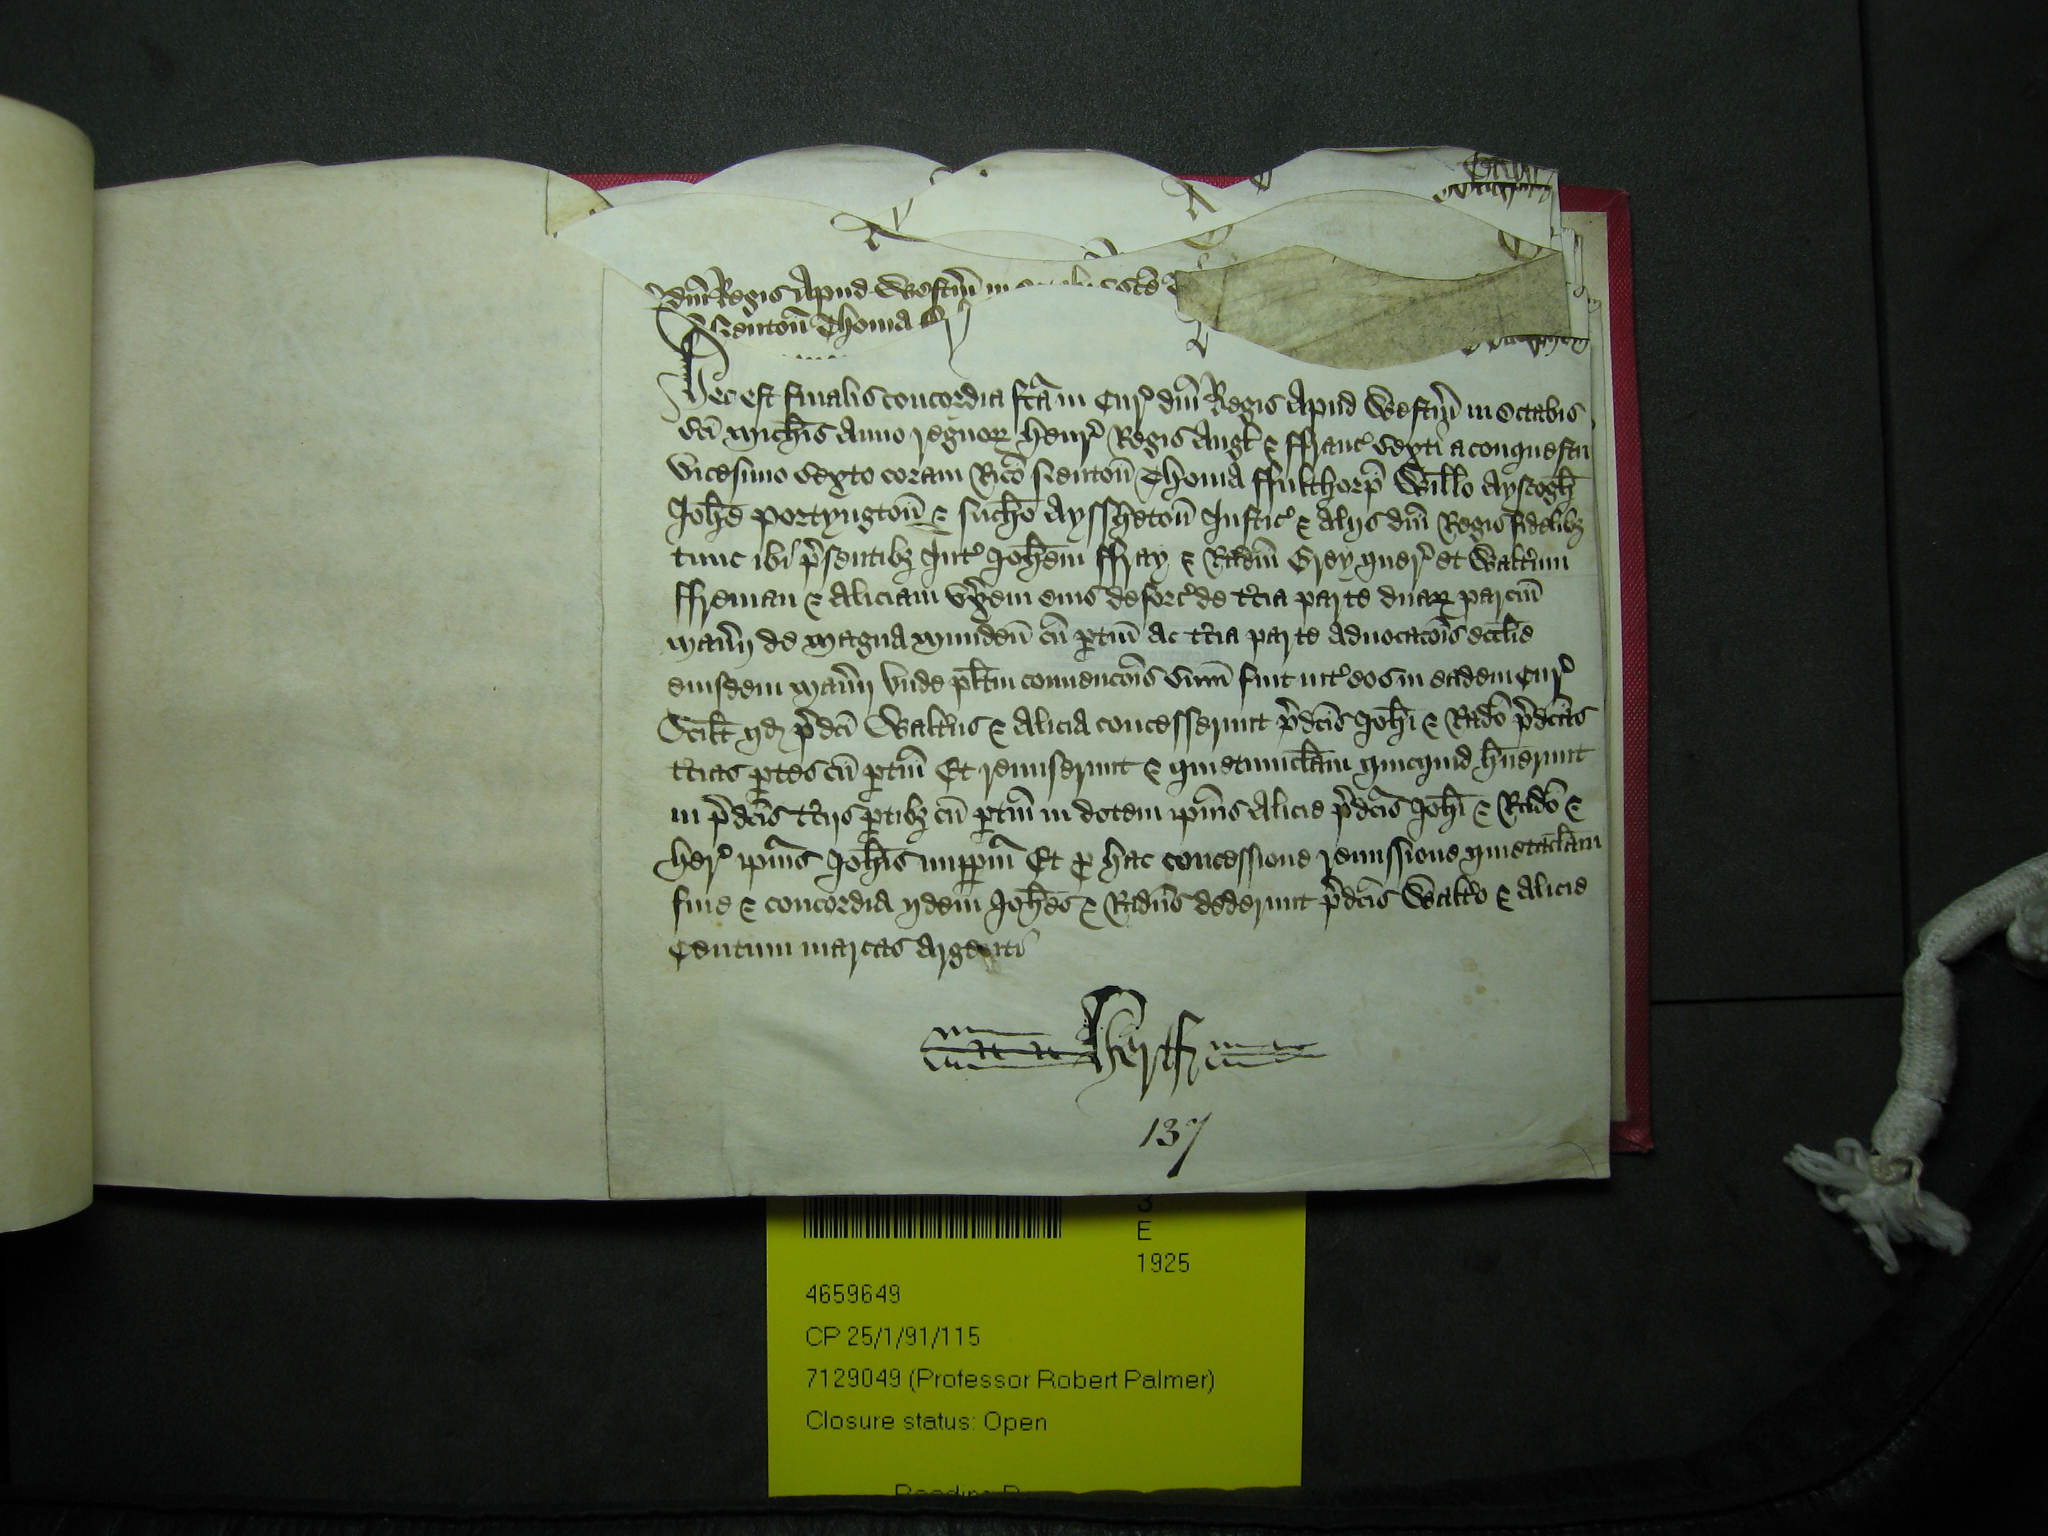 dni Regis Apud Westm in
Neuton Thoma
Hec est finalis concordia fca in Cur dni Regis Apud Westm in Octabis
sci Michis Anno regnor Henr Regis Angl & ffranc sexti a conquestu
vicesimo sexto coram Rico Neuton Thoma ffulthorp Willo Ayscogh
Johe Portyngton & Nicho Ayssheton Justic & alijs dni Regis fidelibz
tunc ibi psentibz Int Johem ffray & Radm Grey quer et Waltum
ffreman & Aliciam vxem eius deforc de tcia parte duar parciu
Manij de Magna Munden cu ptin ac tcia parte aduocacois ecclie
eiusdem Manij vnde plitm conuencois sum fuit int eos in eadem Cur
Scilt qd pdci Waltus & Alicia concesserunt pdcis Johi & Rado pdcas
tcias ptes cu ptin Et remiserunt & quietumclam quicquid huerunt
in pdcis tcijs ptibz cu ptin in dotem ipius Alicie pdcis Johi & Rado &
her ipius Johis imppm Et p hac concessione remissione quietaclam
fine & concordia ijdem Johes & Radus dederunt pdcis Walto & Alicie
Centum marcas argenti
Hertf
137
E
1925
4659649
CP 25/1/91/115
7129049 (Professor Robert Palmer)
Closure status: Open